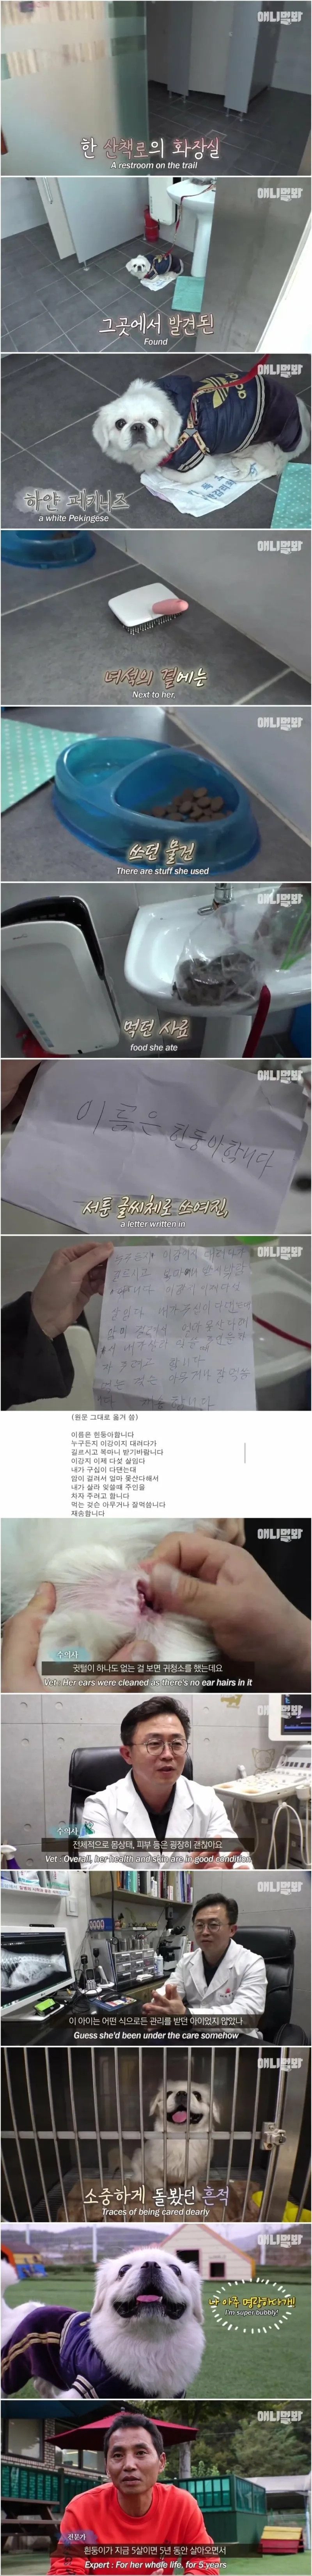 애니멀봐
한 산책로의 화장실
A restroom on the trail
애니멀봐
그곳에서 발견된
Found
애니멀봐
하얀 페키니즈
a white Pekingese
애니멀봐
녀석의 곁에는
Next to her,
애니멀봐
쓰던 물건
There are stuff she used
애니멀봐
먹던 사료
food she ate
애니멀봐
이름은 흰둥이합니다
서툰 글씨체로 쓰여진,
a letter written in
애니멀봐
(원문 그대로 옮겨 씀)
이름은 흰둥아함니다
누구든지 이강이지 대려다가
길르시고 복마니 받기바람니다
이강지 이제 다섯 살임다
내가 구십이 다댄는대
암이 걸려서 얼마 못산다해서
내가 살라 잊쓸때 주인을
차자 주려고 함니다
먹는 것슨 아무거나 잘먹씀니다
재송함니다
수의사
귓털이 하나도 없는 걸 보면 귀청소를 했는데요
Vet : Her ears were cleaned as there's no ear hairs in it
애니멀봐
수의사
전체적으로 몸상태, 피부 등은 굉장히 괜찮아요
Vet : Overall, her health and skin are in good condition
애니멀봐
이 아이는 어떤 식으로든 관리를 받던 아이였지 않았나
Guess she'd been under the care somehow
애니멀봐
소중하게 돌봤던 흔적
Traces of being cared dearly
애니멀봐
나 아주 명랑하다개!
I'm super bubbly!
애니멀봐
전문가
흰둥이가 지금 5살이면 5년 동안 살아오면서
Expert : For her whole life, for 5 years